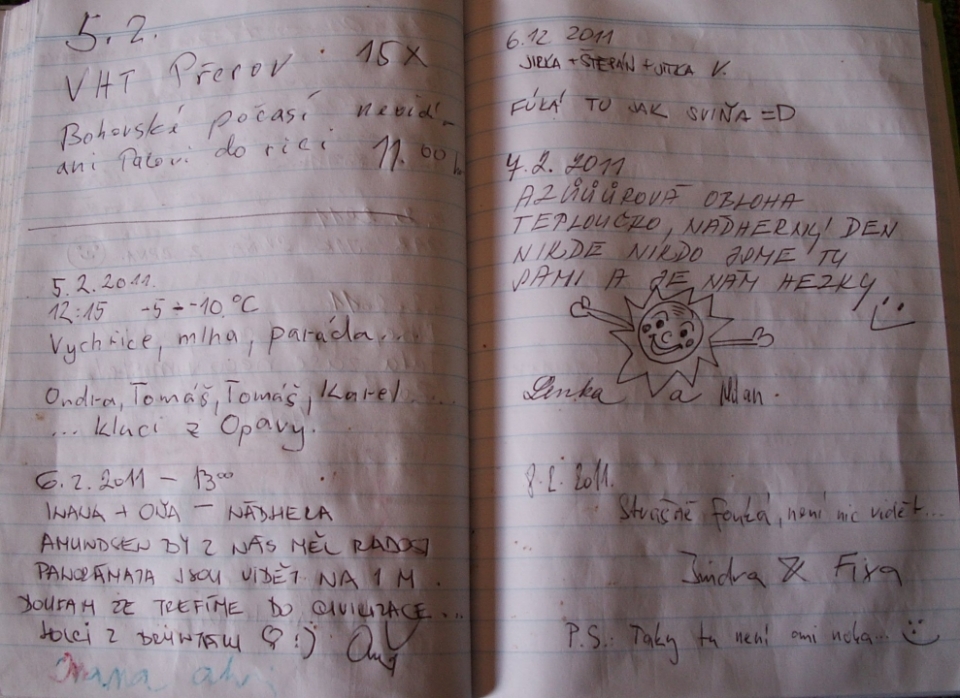 5.2.
VHT Přerov 15X
Bohovské počasí nevid-
ani do 11.00 h
5.2.2011.
12:15 -5 ÷ -10 °C
Vychřice, mlha, paráda...
Ondra, Tomáš, Tomáš, Karel....
... kluci z Opavy.
6.2.2011 - 13⁰⁰
IVANA + OĽA - NÁDHERA
AMUNDSEN BY Z NÁS MĚL RADOST
PANORÁMATA JSOU VIDĚT NA 1 M.
DOUFÁM ŽE TREFÍME DO CIVILIZACE...
HOLCI Z BRUNTÁLU ♡ :)
Ivana
6.12 2011
JIRKA + ŠTĚPÁN + JITKA V.
FÚKÁ TU JAK SVIŇA =D
7.2. 2011
AZŮŮŮROVÁ OBLOHA
TEPLOUČKO, NÁDHERNÝ DEN
NIKDE NIKDO JSME TU
SAMI A JE NÁM HEZKY
Lenka a Milan.
8.2. 2011.
Strašně fouká, není nic vidět...
Jindra & Fixa
P.S.: Taky tu není ani noha...